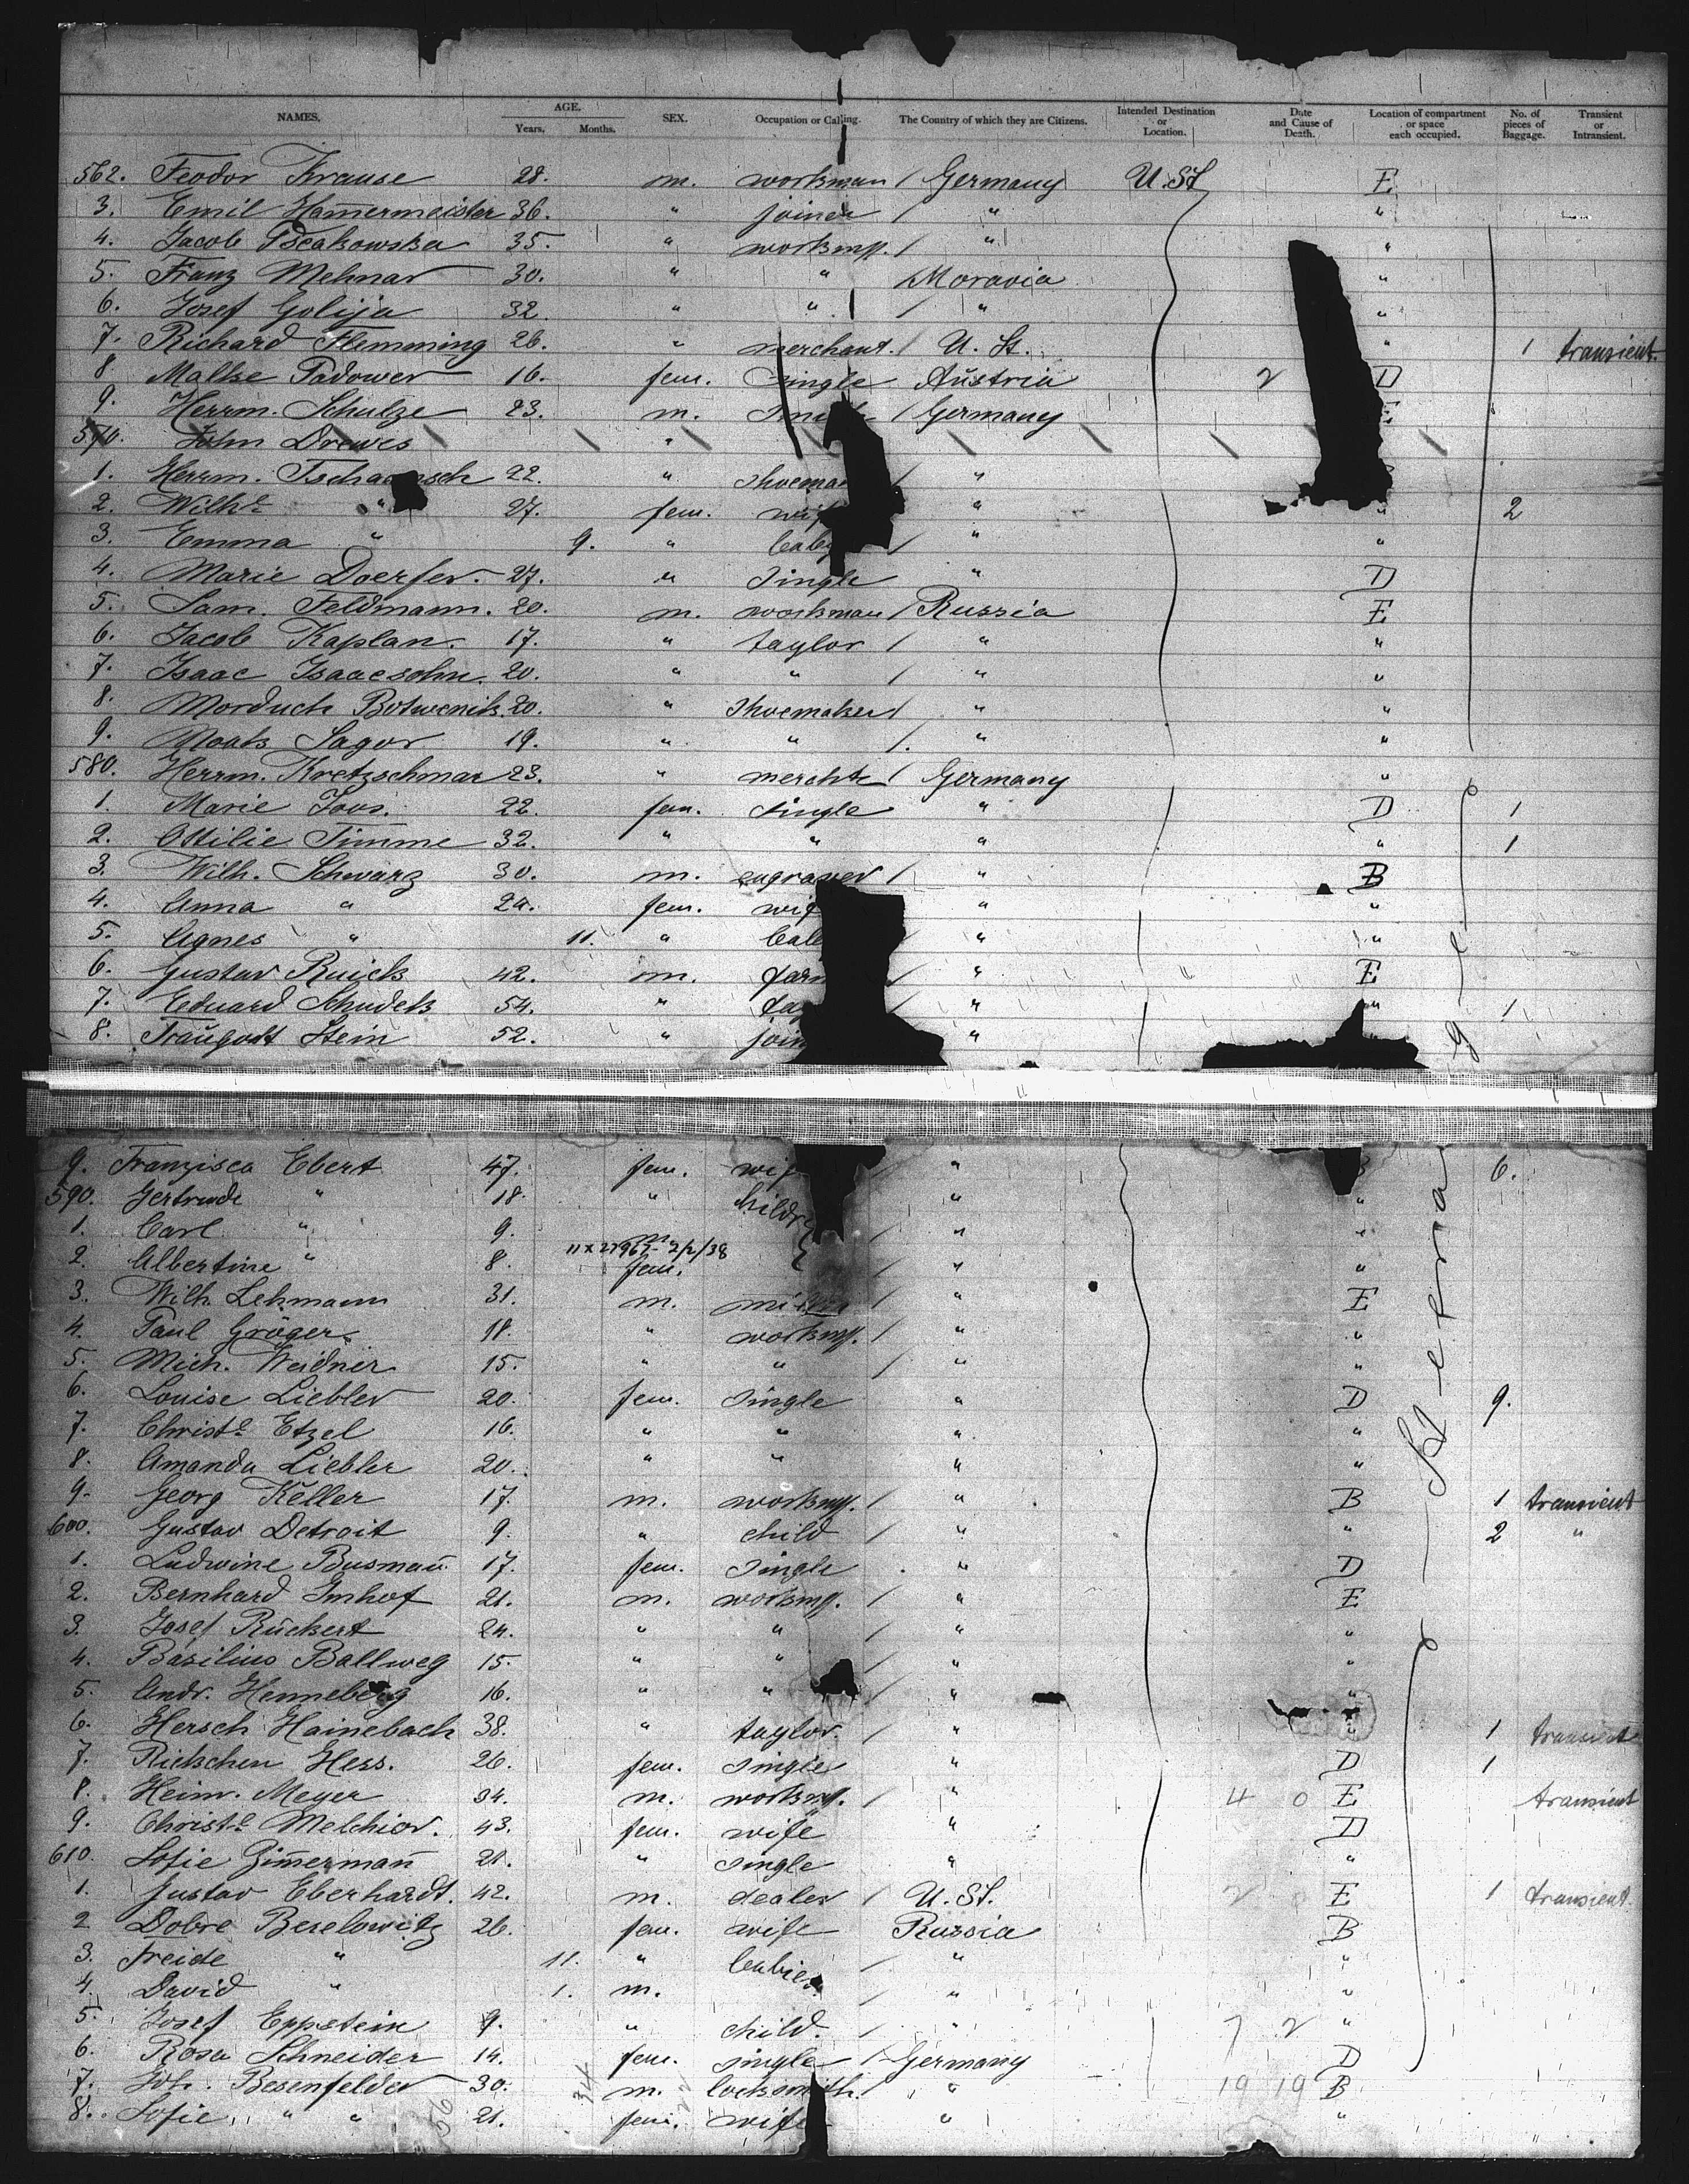 NAMES. AGE. Years. Months. SEX. Occupation or Calling. The Country of which they are Citizens. Intended Destination or Location. Date and Cause of Death. Location of compartment or space each occupied. No. of pieces of Baggage. Transient or Intransient.
562. Feodor Krause 28. m. workman / Germany U. St. E
3. Emil Ham̄ermeister 36. " joiner / " "
4. Jacob 35. " workmn. / " "
5. Franz Mehnar 30. " " Moravia "
6. Josef Golija 32. " " / " "
7. Richard Flemming 26. " merchant. / U. St. " 1 transient.
8. Malke Padower 16. fem. single Austria 2 D
9. Herrm. Schulze 23. m. / Germany E
570. John Drewes "
1. Herrm. 22. " / "
2. Wilhe " 27. fem. " " 2
3. Emma " 9. " baby / " "
4. Marie Doerfer. 27. " single " D
5. Sam. Feldmann. 20. m. workman / Russia E
6. Jacob Kaplan. 17. " taylor / " "
7. Isaac Isaacsohn. 20. " " / " "
8. Morduch Botwenik. 20. " shoemaker / " "
9. Sagor 19. " " /. " "
580. Herrm. Kretzschmar 23. " merchte / Germany "
1. Marie 22. fem. single " D 1
2. Ottilie Tim̄me 32. " " " " 1
3. Wilh. Schwarz 30. m. engraver / " B
4. Anna " 24. fem. " "
5. Agnes " 11. " / " "
6. Gustav Ruick 42. m. / " E
7. Eduard Schudek 54. " / " " 1
8. Traugott Stein 52. " "
9. Franzisca Ebert 47. fem. / " 6.
590. Gertrude " 18. " childr " "
1. Carl " 9. m. / " "
11x27967- 2/2/38
2. Albertine " 8. fem. / " "
3. Wilh. Lehmann 31. m. / " E
4. Paul Gröger. 18. " workmn. / " "
5. Mich. Weidner 15. " " / " "
6. Louise Liebler 20. fem. single " D 9.
7. Christe Etzel 16. " " " "
8. Amanda Liebler 20. " " " "
9. Georg Keller 17. m. workmn. / " B 1 transient
600. Gustav Detroit 9. " child / " " 2 "
1. Ludwine Busman̄ 17. fem. single " D
2. Bernhard Imhof 21. m. workmn. / " E
3. Josef Rückert 24. " " / " "
4. Basilius Ballweg 15. " " / " "
5. Andr. Henneberg 16. " " / " "
6. Hersch Hainebach 38. " taylor. / " " 1 transient
7. Riekchen Hess. 26. fem. single " D 1
8. Heinr. Meyer 34. m. workmn. / " 4 0 E transient
9. Christe Melchior. 43. fem. wife " D
610. Sofie Zim̄erman̄ 21. " single " "
1. Gustav Eberhardt. 42. m. dealer / U. St. 2 0 E 1 transient
2. Dobre Beselowitz 26. fem. wife Russia B
3. Freide " 11. " babies / " "
4. David " 1. m. / " "
5. Josef Eppstein 9. " child. / " 7 2 "
6. Rosa Schneider 14. fem. single / Germany D
7. Joh. Besenfelder 30. m. locksmith. / " 19 19 B
8. Sofie " " 21. fem. wife " "